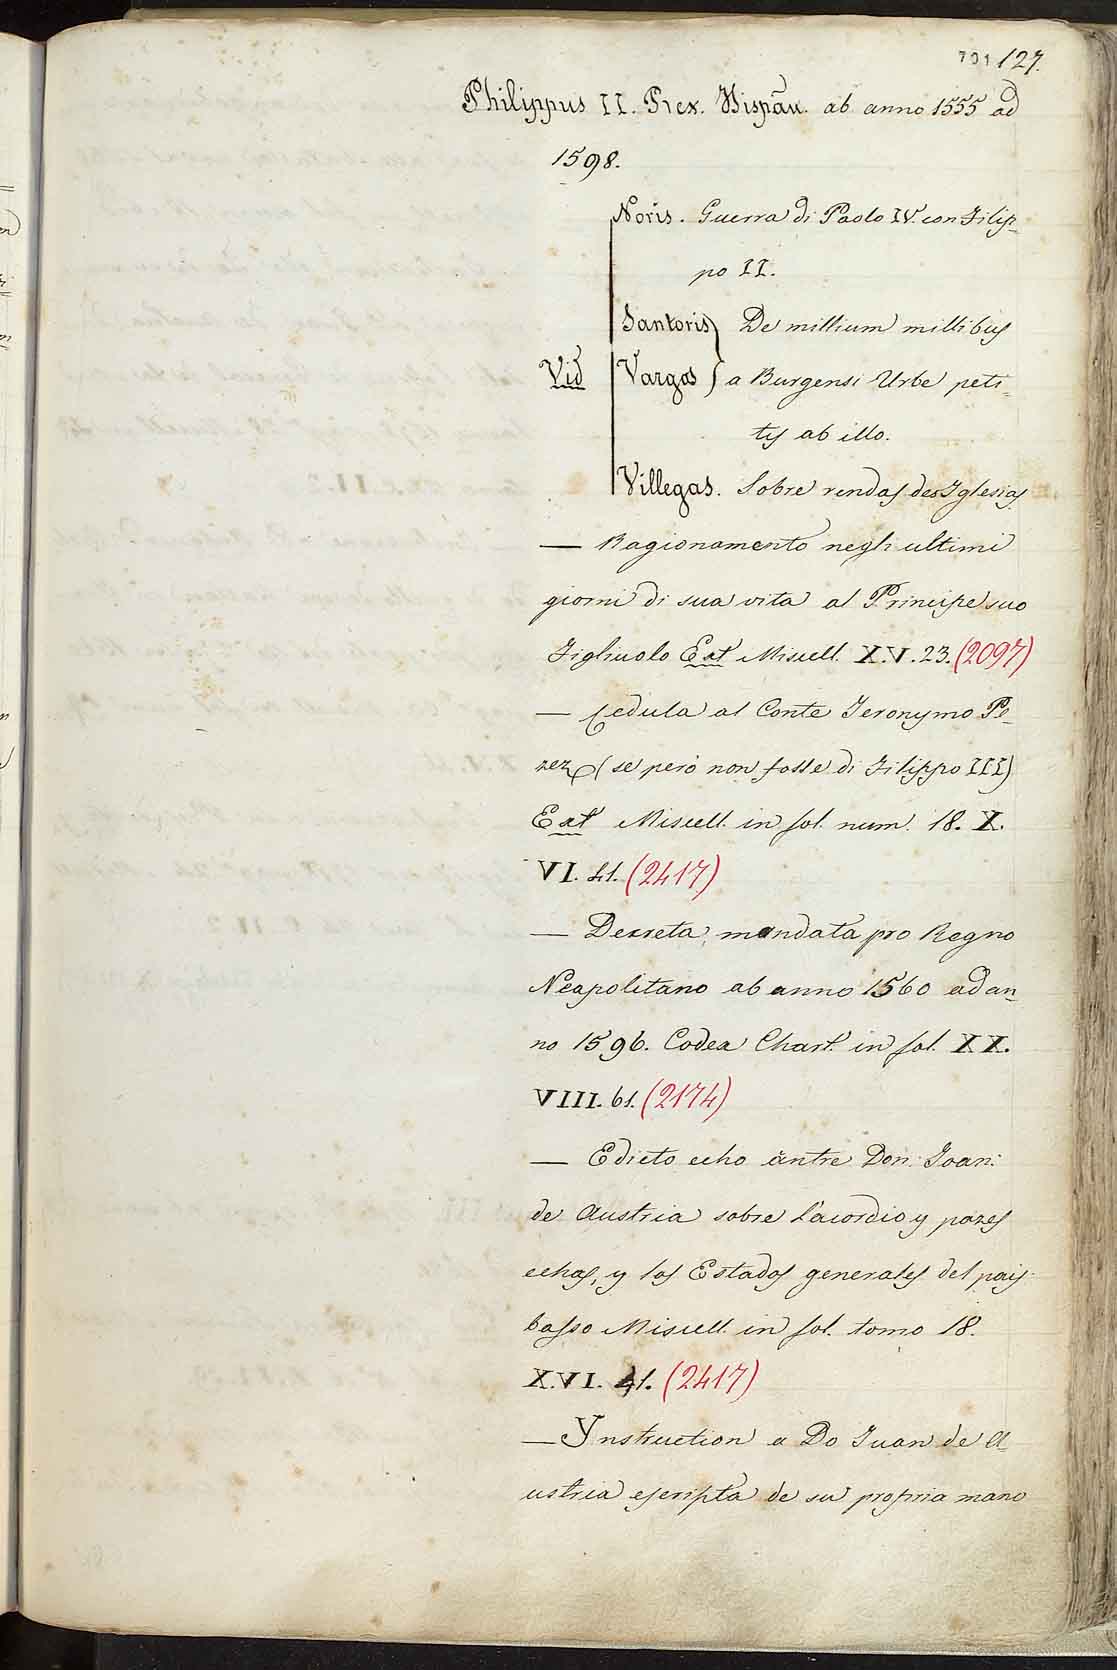 701 127.
Philippus II. Rex. Hispān. ab anno 1555 ad
1598.
Noris. Guerra di Paolo IV. con Filip-
po II.
Santoris De millium millibus
Vid Vargas a Burgensi Urbe peti-
tis ab illo.
Villegas. Sobre rendas des Iglesias
— Ragionamento negli ultimi
giorni di sua vita al Principe suo
Figliuolo Ext Miscell. X.V.23. (2097)
— Cedula al Conte Jeronymo Pe-
rez (se però non fosse di Filippo III)
Ext Miscell. in fol. num. 18. X.
VI. 41. (2417)
— Decreta, mandata pro Regno
Neapolitano ab anno 1560 ad an-
no 1596. Codex Chart. in fol. XX.
VIII. 61. (2174)
— Edicto echo äntre Don: Joan:
de Austria sobre l'acordio y pazes
echas, y los Estados generales del pais
basso Miscell. in fol. tomo 18.
X.VI. 41. (2417)
— Ynstruction a Do Juan de A-
ustria escripta de su propria mano